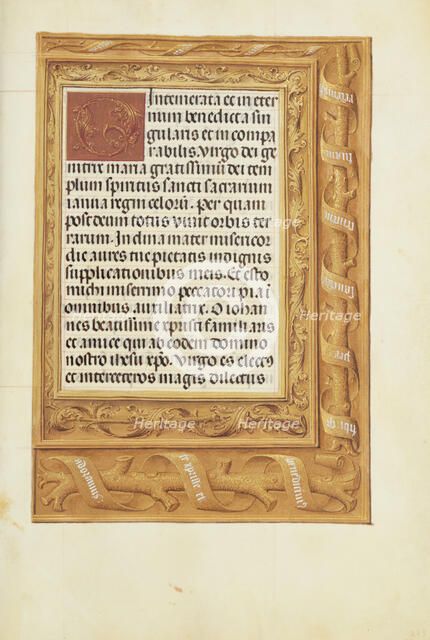 O Intemerata et in eter
num benedicta sin
gularis et in compa
rabilis virgo dei ge
nitrix maria gratissimū dei tem
plum spiritus sancti sacrarium
ianua regni celorū. Per quam
post deum totus viuit orbis ter
rarum. Inclina mater misericor
die aures tue pietatis indignis
supplicationibus meis. Et esto
michi miserrimo peccatori pia ī
omnibus auxiliatrix. O iohan
nes beatissime xpristi familiaris
et amice qui ab eodem domino
nostro ihesu xpo. Virgo es electꝰ
et inter ceteros magis dilectus
adoramus
te xpriste et
benedicimus
tibi
Heritage
Heritage
Heritage
Heritage